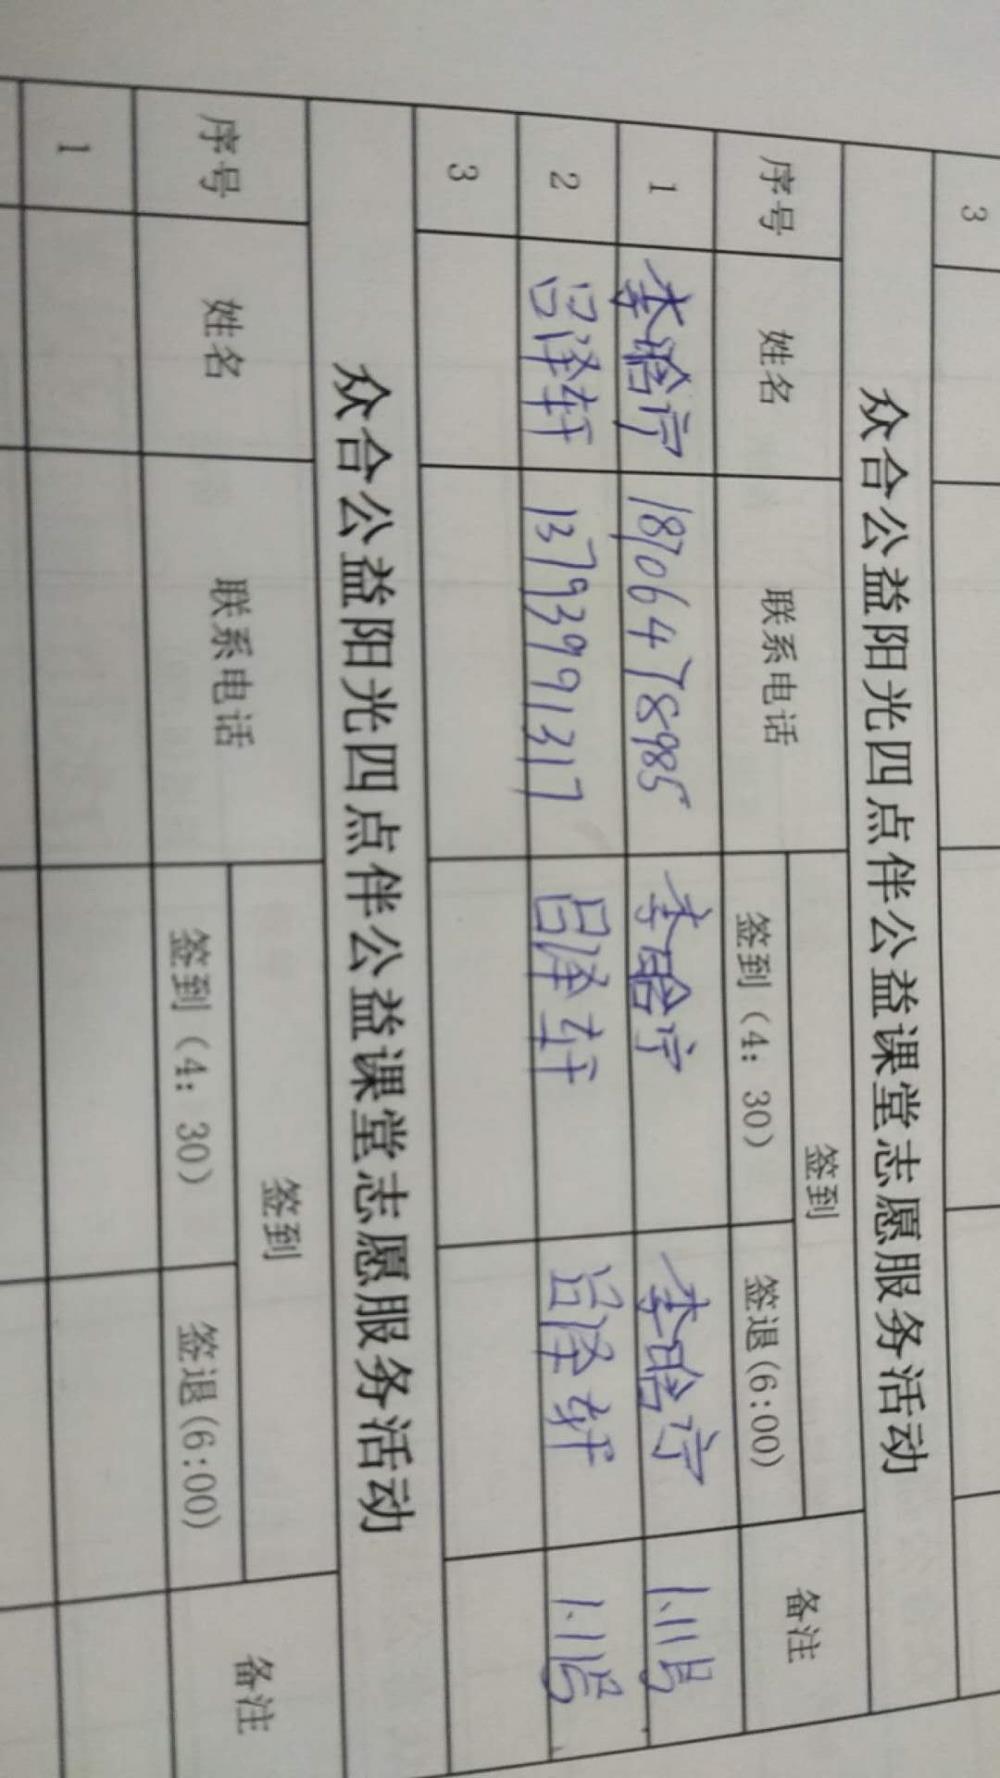 3
众合公益阳光四点伴公益课堂志愿服务活动
序号 姓名 联系电话 签到 备注
签到（4：30） 签退(6:00)
1 李晗疗 18706478985 李晗疗 李晗疗 1.11号
2 吕泽轩 13793991317 吕泽轩 吕泽轩 1.11号
3
众合公益阳光四点伴公益课堂志愿服务活动
序号 姓名 联系电话 签到 备注
签到（4：30） 签退(6:00)
1